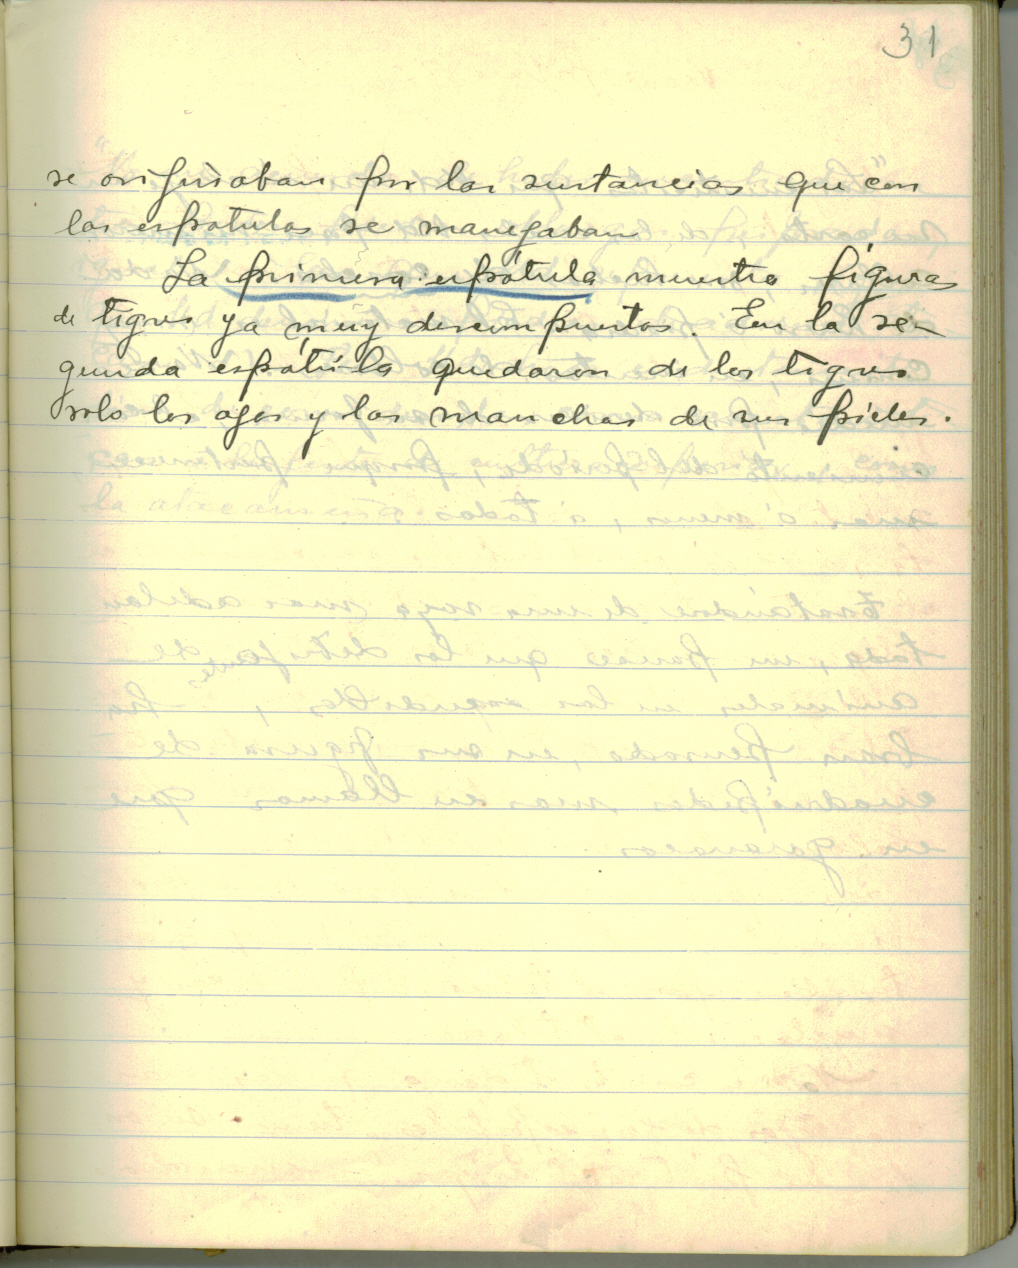 31
se originaban por las sustancias que con
las espatulas se manejaban
La primera espátula muestra figuras
de tigres ya muy descompuestos. En la se-
gunda espátula quedaron de los tigres
solo los ojos y las manchas de sus pieles.